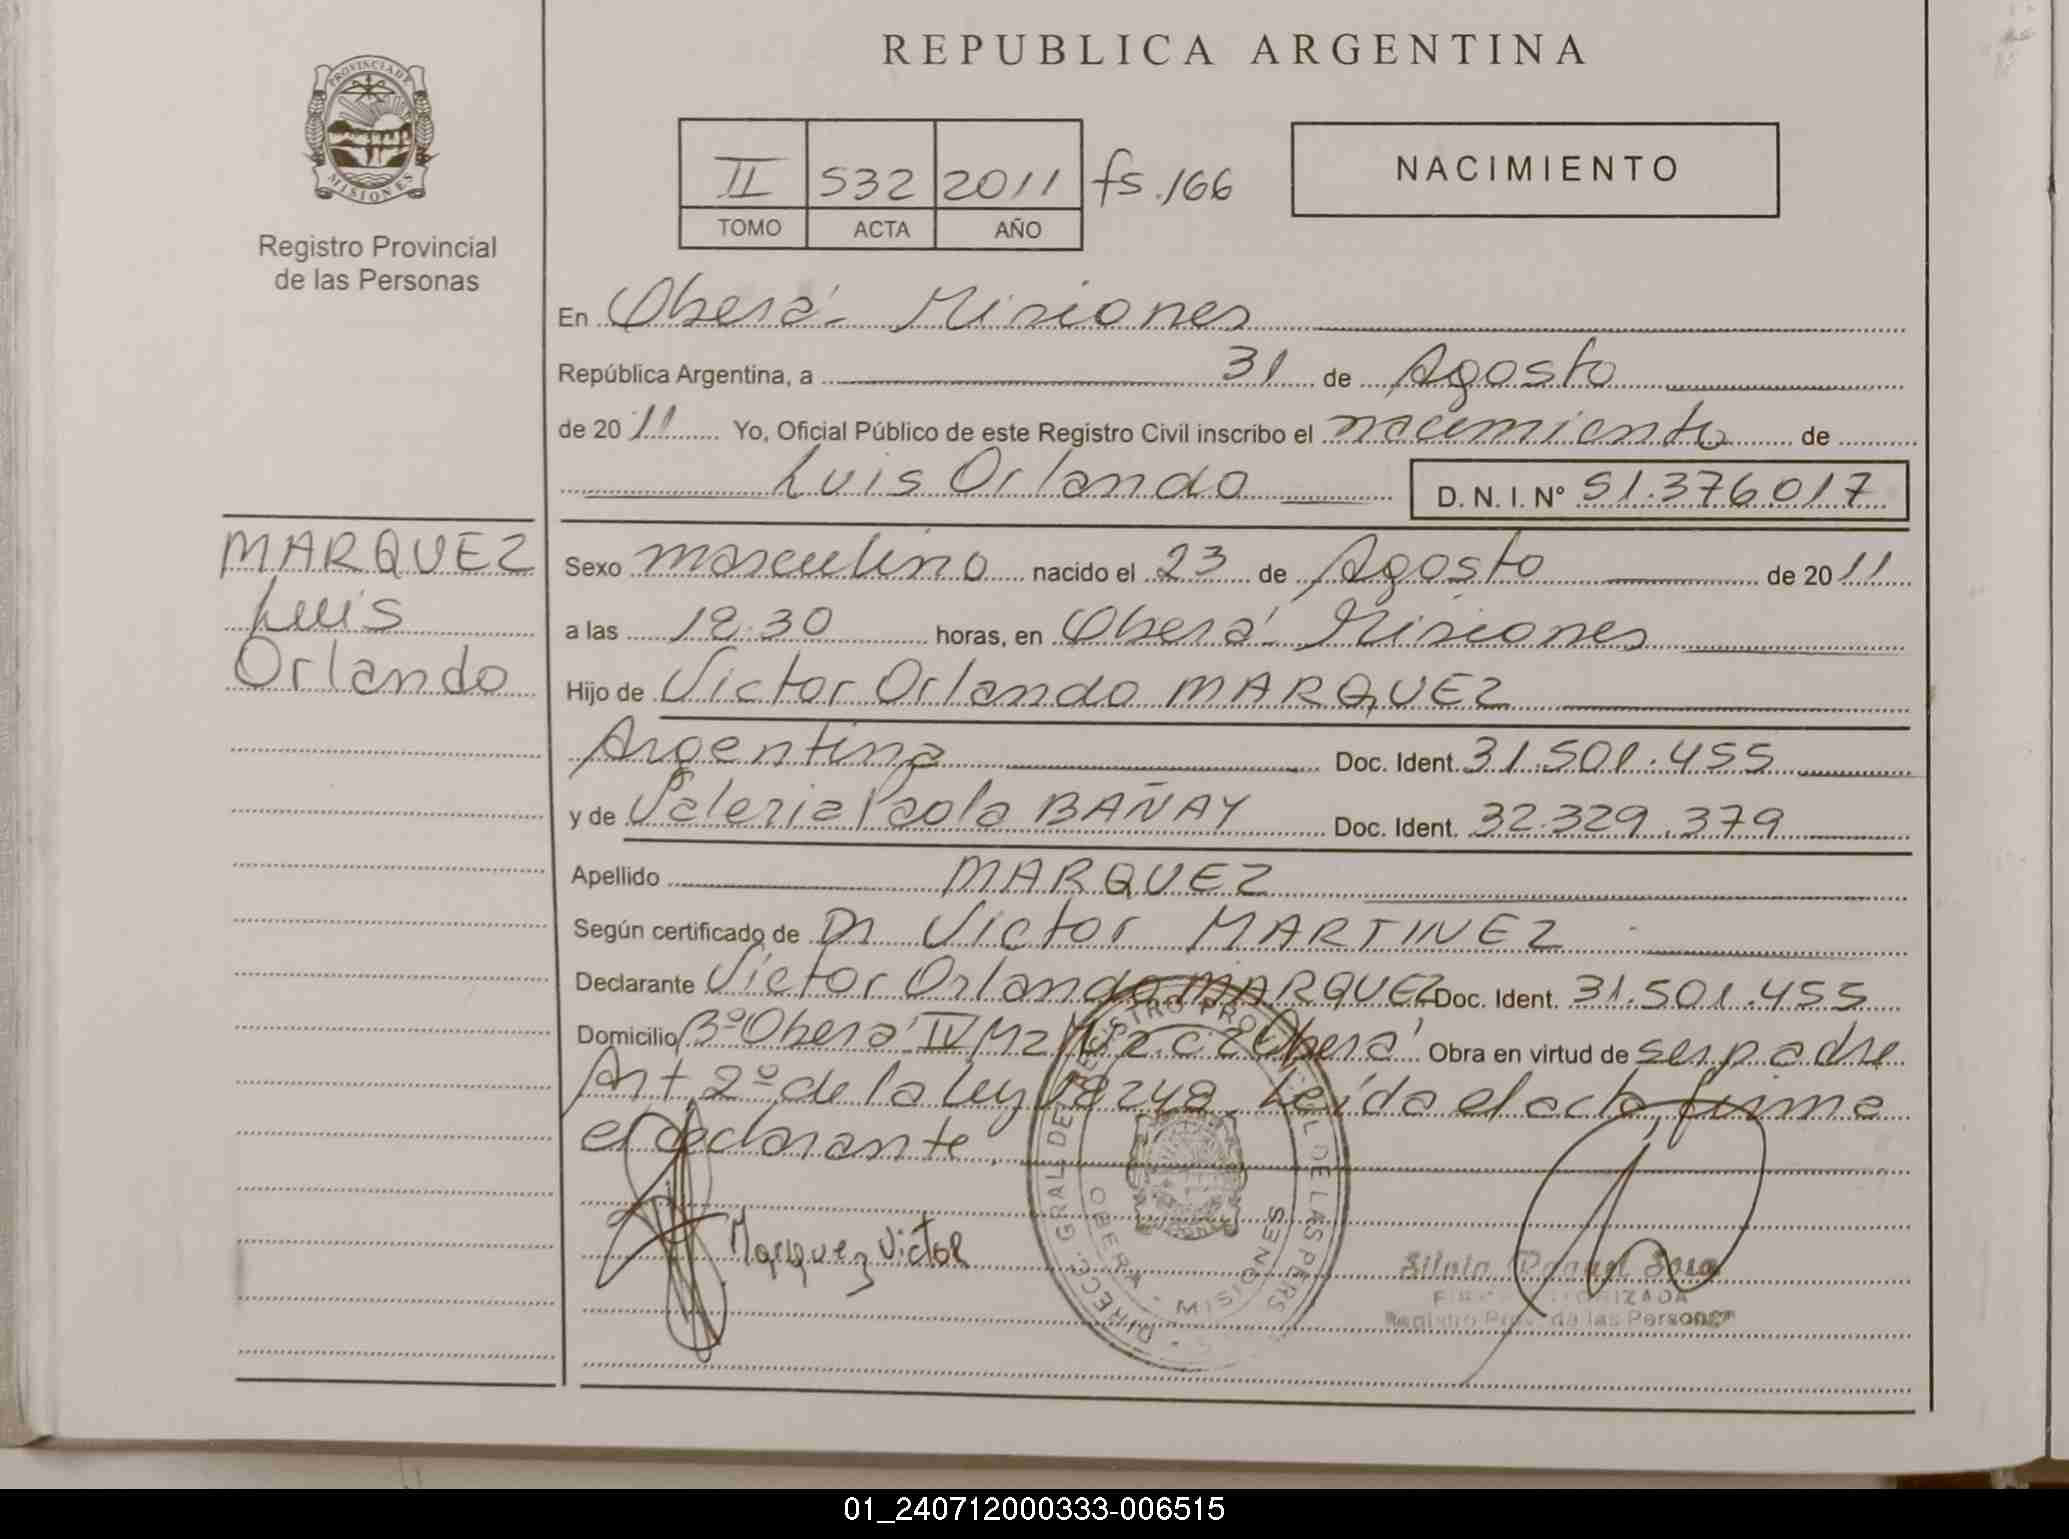 REPUBLICA ARGENTINA
PROVINCIA DE
MISIONES
Registro Provincial
de las Personas
II 532 2011 fs.166
TOMO ACTA AÑO
NACIMIENTO
En Oberá - Misiones
República Argentina, a 31 de Agosto
de 2011 Yo, Oficial Público de este Registro Civil inscribo el nacimiento de
Luis Orlando D. N. I. Nº 51.376.017
MARQUEZ
Luis
Orlando
Sexo masculino nacido el 23 de Agosto de 2011
a las 12.30 horas, en Oberá - Misiones
Hijo de Victor Orlando MARQUEZ
Argentina Doc. Ident. 31.501.455
y de Valeria Paola BAÑAY Doc. Ident. 32.329.379
Apellido MARQUEZ
Según certificado de Dr Victor MARTINEZ
Declarante Victor Orlando MARQUEZ Doc. Ident. 31.501.455
Domicilio Bº Oberá IV Mz Oberá Obra en virtud de ser padre
Art 2º de la Ley 18248. Leída el acta firma
el declarante.
Marquez Victor
OBERA - MISIONES
Silvia Raquel Sosa
FIRMA AUTORIZADA
Registro Prov. de las Personas
01_240712000333-006515